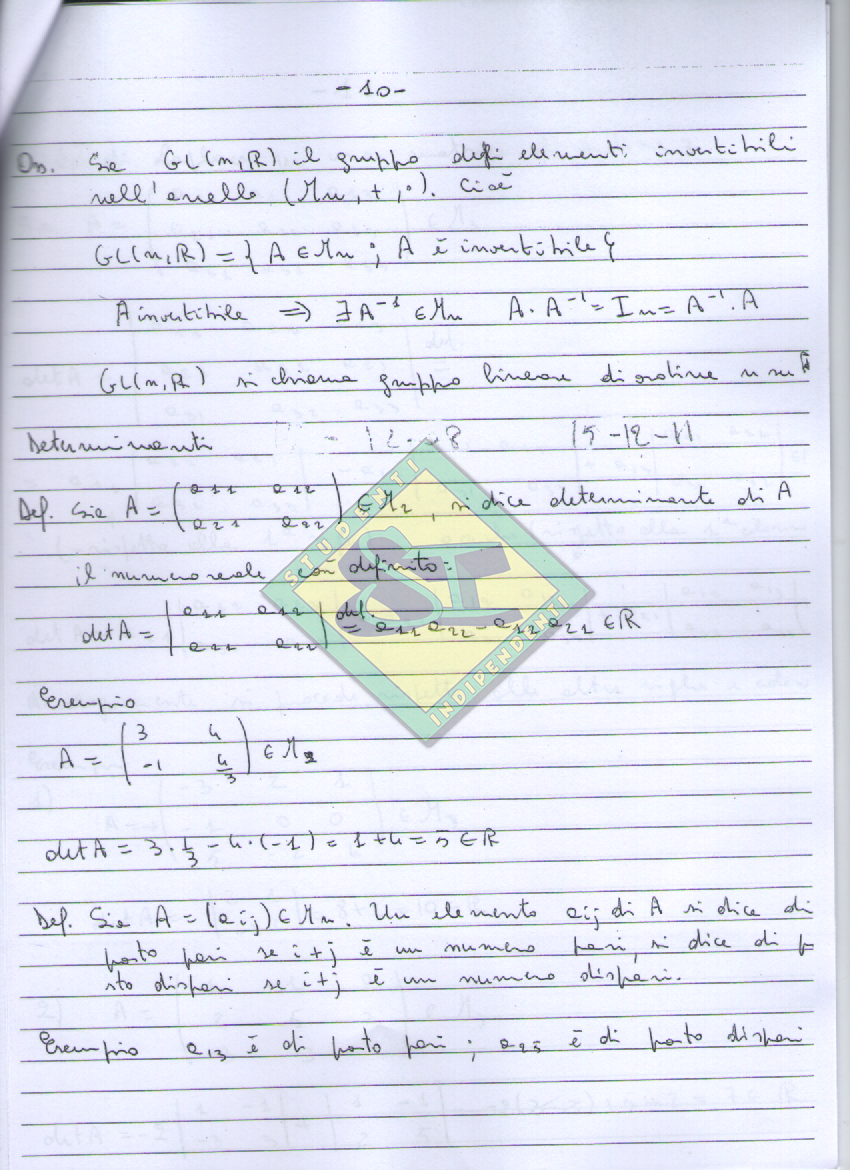 - 10 -
Oss. Sia GL(n,R) il gruppo degli elementi invertibili
nell'anello (Mn, +, ·). Cioè
GL(n,R) = { A ∈ Mn ; A è invertibile }
A invertibile ⇒ ∃ A⁻¹ ∈ Mn A · A⁻¹ = In = A⁻¹ · A
GL(n,R) si chiama gruppo lineare di ordine n su R
Determinanti
15-12-11
Def. Sia A = ( a11 a12
a21 a22 ) ∈ M2, si dice determinante di A
il numero reale così definito:
det A = | a11 a12
a21 a22 | def. = a11 a22 - a12 a21 ∈ R
Esempio
A = ( 3 4
-1 4/3 ) ∈ M2
det A = 3 · 1/3 - 4 · (-1) = 1 + 4 = 5 ∈ R
Def. Sia A = (aij) ∈ Mn. Un elemento aij di A si dice di
posto pari se i+j è un numero pari, si dice di p
sto dispari se i+j è un numero dispari.
Esempio a13 è di posto pari ; a25 è di posto dispari
STUDENTI
INDIPENDENTI